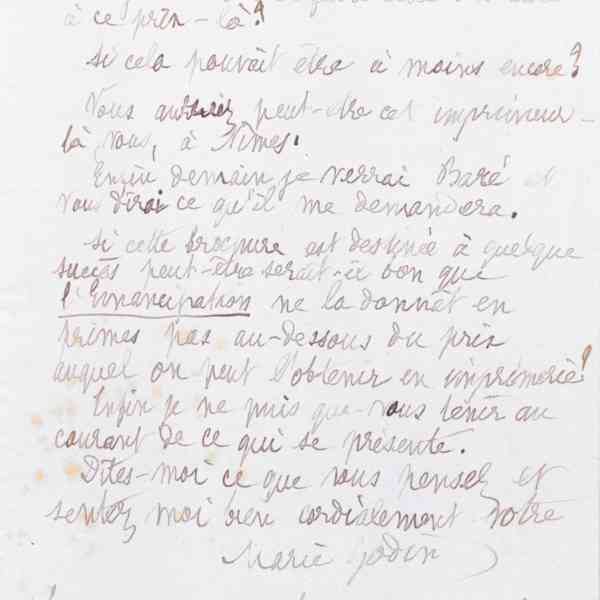 à ce prix-là?
Si cela pouvait être à moins encore?
Vous auriez peut-être cet imprimeur-
là vous, à Nîmes.
Enfin demain je verrai Baré et
vous dirai ce qu'il me demandera.
Si cette brochure est destinée à quelque
succès peut-être serait-il bon que
l'Emancipation ne la donnât en
primes pas au-dessous du prix
auquel on peut l'obtenir en imprimerie!
Enfin je ne puis que vous tenir au
courant de ce qui se présente.
Dites-moi ce que vous pensez et
sentez moi bien cordialement votre
Marie Godin